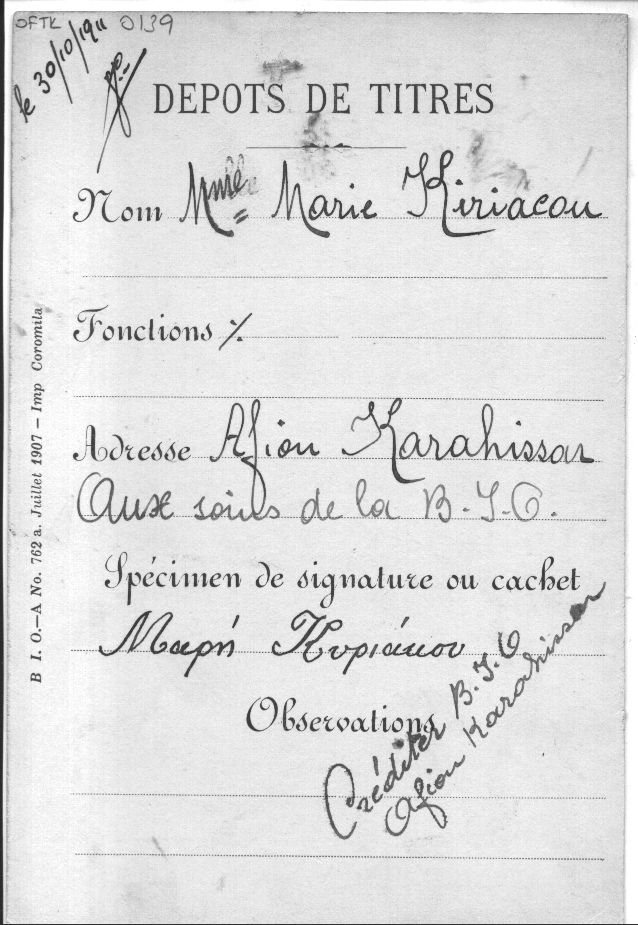 OFTK 0139
le 30/10/1911
DEPOTS DE TITRES
Nom Mlle Marie Kiriacou
Fonctions ٪
Adresse Afion Karahissar
Aux soins de la B.I.O.
Spécimen de signature ou cachet
Μαρή Κυριάκου
Observations
Créditer B.I.O
Afion Karahissar
B I. O.—A No. 762 a. Juillet 1907 — Imp Coromila